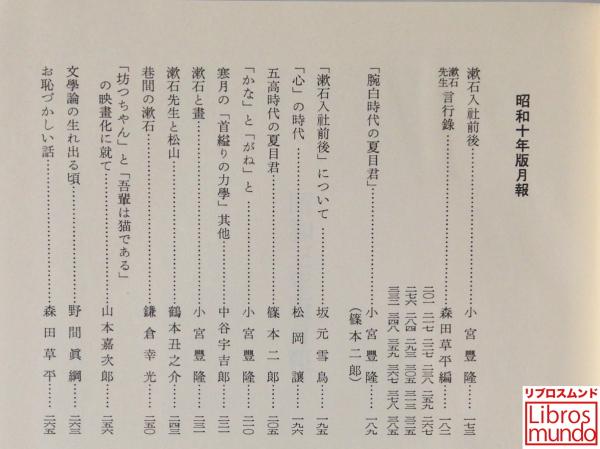 昭和十年版月報
漱石入社前後……………小宮豐隆……一七三
漱石先生言行錄……………森田草平編……一八二
二〇一 二一七 二二七 二三八 二五九 二六七
二七六 二八四 二九三 三〇五 三一三 三二三
三三三 三四八 三五九 三六七 三七八 三八五
「腕白時代の夏目君」……………小宮豐隆……一八九
(篠本二郎)
「漱石入社前後」について……………坂元雪鳥……一九五
「心」の時代……………松岡讓……一九六
五高時代の夏目君……………篠本二郎……二〇五
「かな」と「がね」と……………小宮豐隆……二一〇
寒月の「首縊りの力學」其他……………中谷宇吉郎……二二一
漱石と畫……………小宮豐隆……二三一
漱石先生と松山……………鶴本丑之介……二四三
巷間の漱石……………鎌倉幸光……二五〇
「坊つちやん」と「吾輩は猫である」
の映畫化に就て……………山本嘉次郎……二五六
文學論の生れ出る頃……………野間眞綱……二六三
お恥づかしい話……………森田草平……二六五
リブロスムンド
Libros
mundo